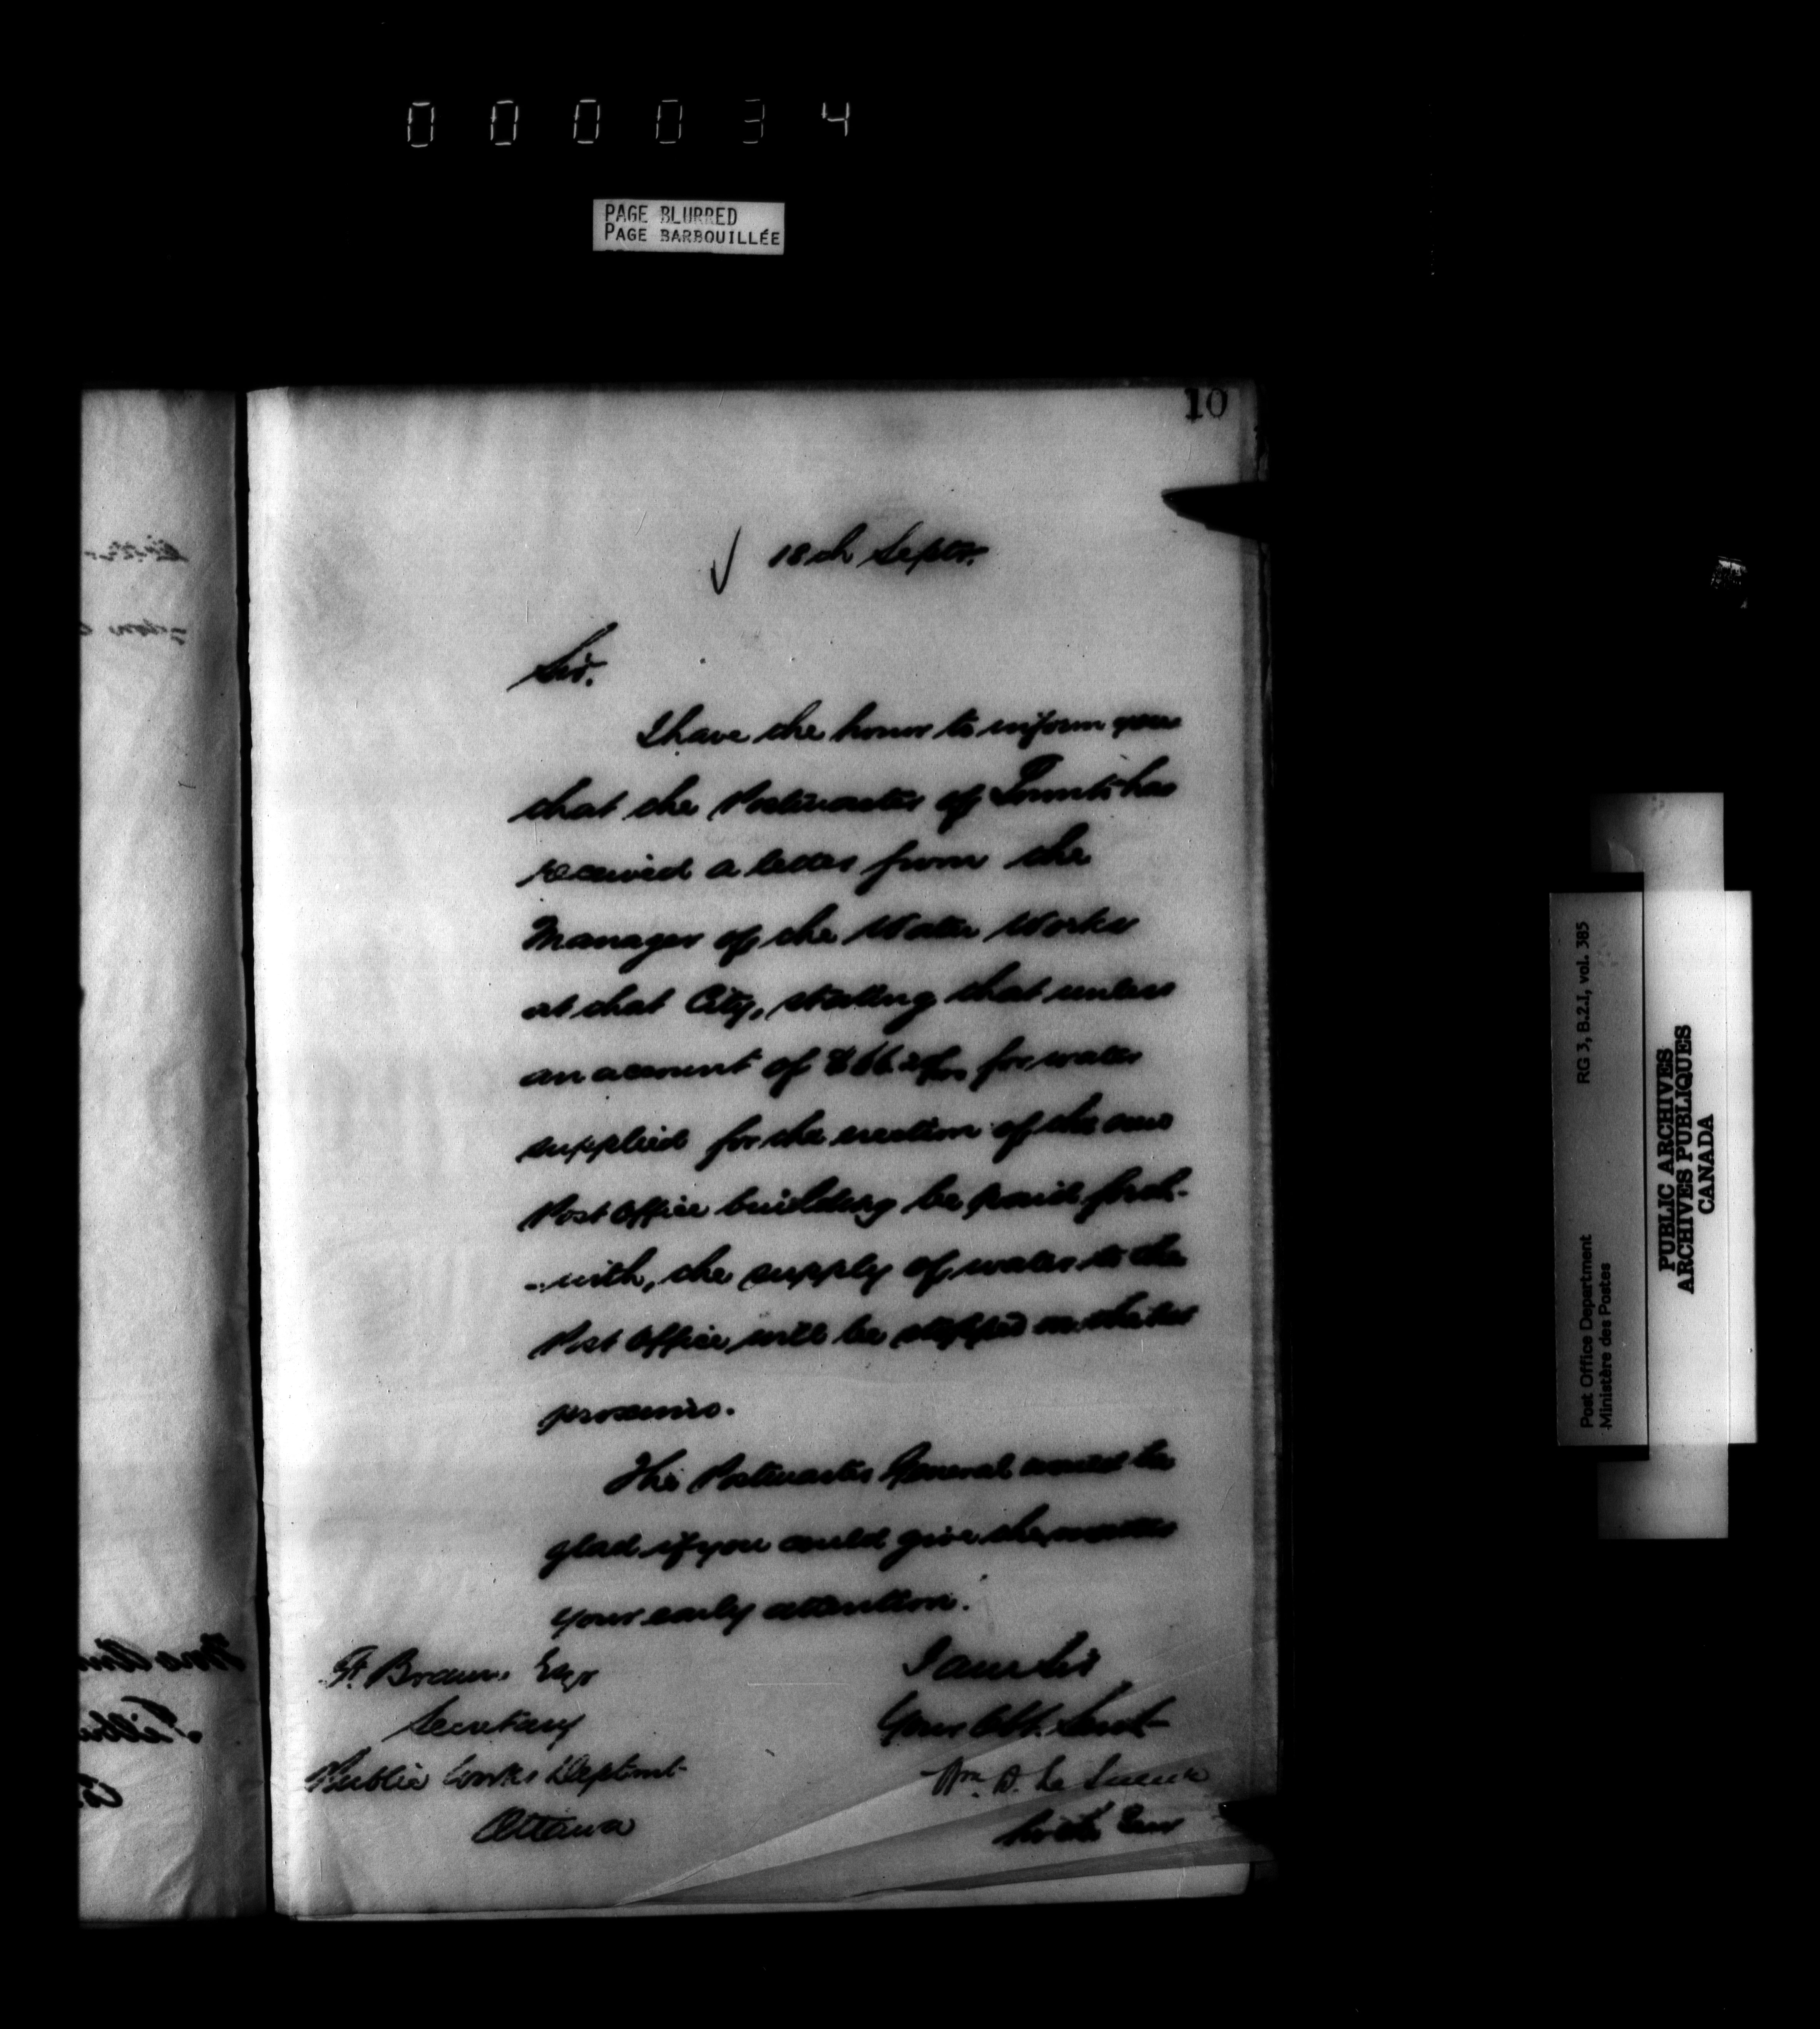 000034
PAGE BLURRED
PAGE BARBOUILLÉE
10
18th Septr.
Sir.
I have the honor to inform you
that the Postmaster of Toronto has
received a letter from the
Manager of the Water Works
at that City, stating that unless
an account of for water
supplied for the erection of the new
Post Office building be paid forth-
-with, the supply of water to the
Post Office will be stopped on the 1st
proximo.
The Postmaster General would be
glad if you could give the matter
your early attention.
F. Braun. Esqr
Secretary
Public Works Deptmt
Ottawa
I am Sir
Your Obt. Servt
Wm. D. Le Sueur
for
RG 3, B.2.I, vol. 385
Post Office Department
Ministère des Postes
PUBLIC ARCHIVES
ARCHIVES PUBLIQUES
CANADA